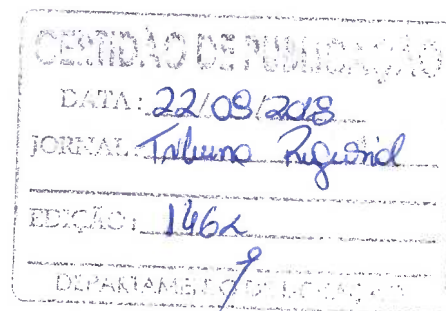 CERTIDÃO DE PUBLICAÇÃO
DATA: 22/08/2018
JORNAL: Tribuna Regional
EDIÇÃO: 1462
DEPARTAMENTO DE LICITAÇÃO